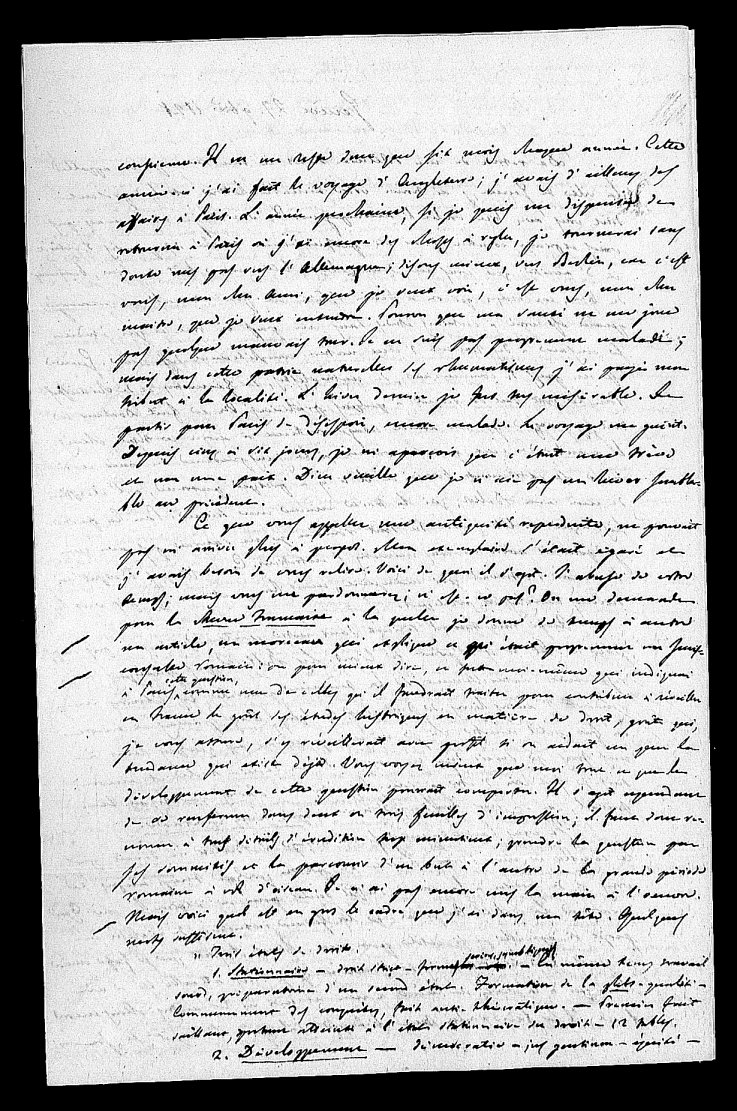 conscience. Il ne me reste donc que six mois chaque année. Cette
année-ci j'ai fait le voyage d'Angleterre ; j'avais d'ailleurs des
affaires à Paris. L'année prochaine, si je puis me dispenser de
retourner à Paris où j'ai encore des choses à régler, je tournerai sans
doute mes pas vers l'Allemagne ; disons mieux, vers Berlin, car c'est
vous, mon cher ami, que je veux voir, c'est vous, mon cher
maître, que je veux entendre. Pourvu que ma santé ne me joue
pas quelque mauvais tour. Je ne suis pas proprement malade ;
mais dans cette patrie naturelle des rhumatismes j'ai payé mon
tribut à la localité. L'hiver dernier je fus très misérable. Je
partis pour Paris de désespoir, encore malade. Le voyage me guérit.
Depuis cinq à six jours, je m'aperçois que c'était une trève
et non une paix. Dieu veuille que je n'aie pas un hiver sembla-
ble au précédent.
Ce que vous appelez une antiquité reproduite, ne pouvait
pas m'arriver plus à propos. Mon exemplaire s'était égaré et
j'avais besoin de vous relire. Voici de quoi il s'agit. J'abuse de votre
temps ; mais vous me pardonnerez ; n'est-ce pas ? On me demande
pour la Revue Française à laquelle je donne de temps à autre
un article, un morceau qui explique ce qui était proprement un juris-
consulte romain : ou pour mieux dire, ce fut moi-même qui indiquai
à Paris cette question, comme une de celles qu'il faudrait traiter pour contribuer à réveiller
en France le goût des études historiques en matière de droit, goût qui,
je vous assure, s'y réveillerait avec profit si on aidait un peu la
tendance qui existe déjà. Vous voyez mieux que moi tout ce que le
développement de cette question pourrait comporter. Il s'agit cependant
de se renfermer dans deux ou trois feuilles d'impression ; il faut donc re-
noncer à tous détails d'érudition trop minutieux ; prendre la question par
ses sommités et la parcourir d'un bout à l'autre de la grande période
romaine à vol d'oiseau. Je n'ai pas encore mis la main à l'oeuvre.
Mais voici quel est en gros le cadre que j'ai dans ma tête. Quelques
mots suffisent.
" Trois états de droit.
1. Stationnaire – droit strict – – En même temps travail
sourd, préparatoire d'un second état. Formation de la plebs –
Communément des conquêtes, fait anti-thématique. – Premier fait
saillant, atteinte à l'état stationnaire du droit – 12 tables.
2. Développement – démocratie – jus gentium – équité –